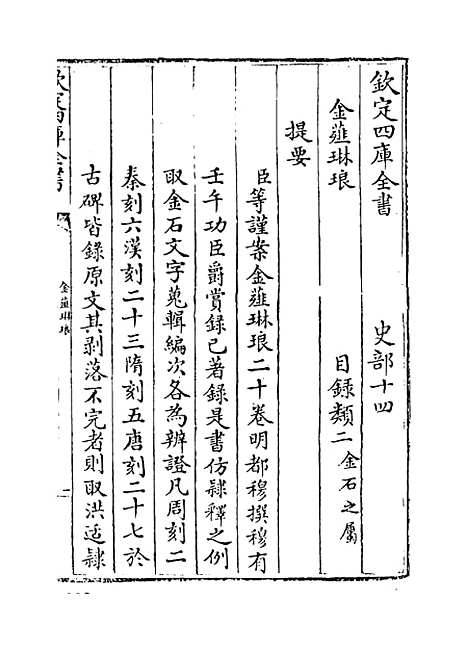 欽定四庫全書　史部十四
金薤琳琅　目録類二金石之屬
提要
臣等謹案金薤琳琅二十卷明都穆撰穆有
壬午功臣爵賞録已著録是書仿隸釋之例
取金石文字蒐輯編次各為辨證凡周刻二
秦刻六漢刻二十三隋刻五唐刻二十七於
古碑皆錄原文其剥落不完者則取洪适隸
欽定四庫全書
金薤琳琅
一